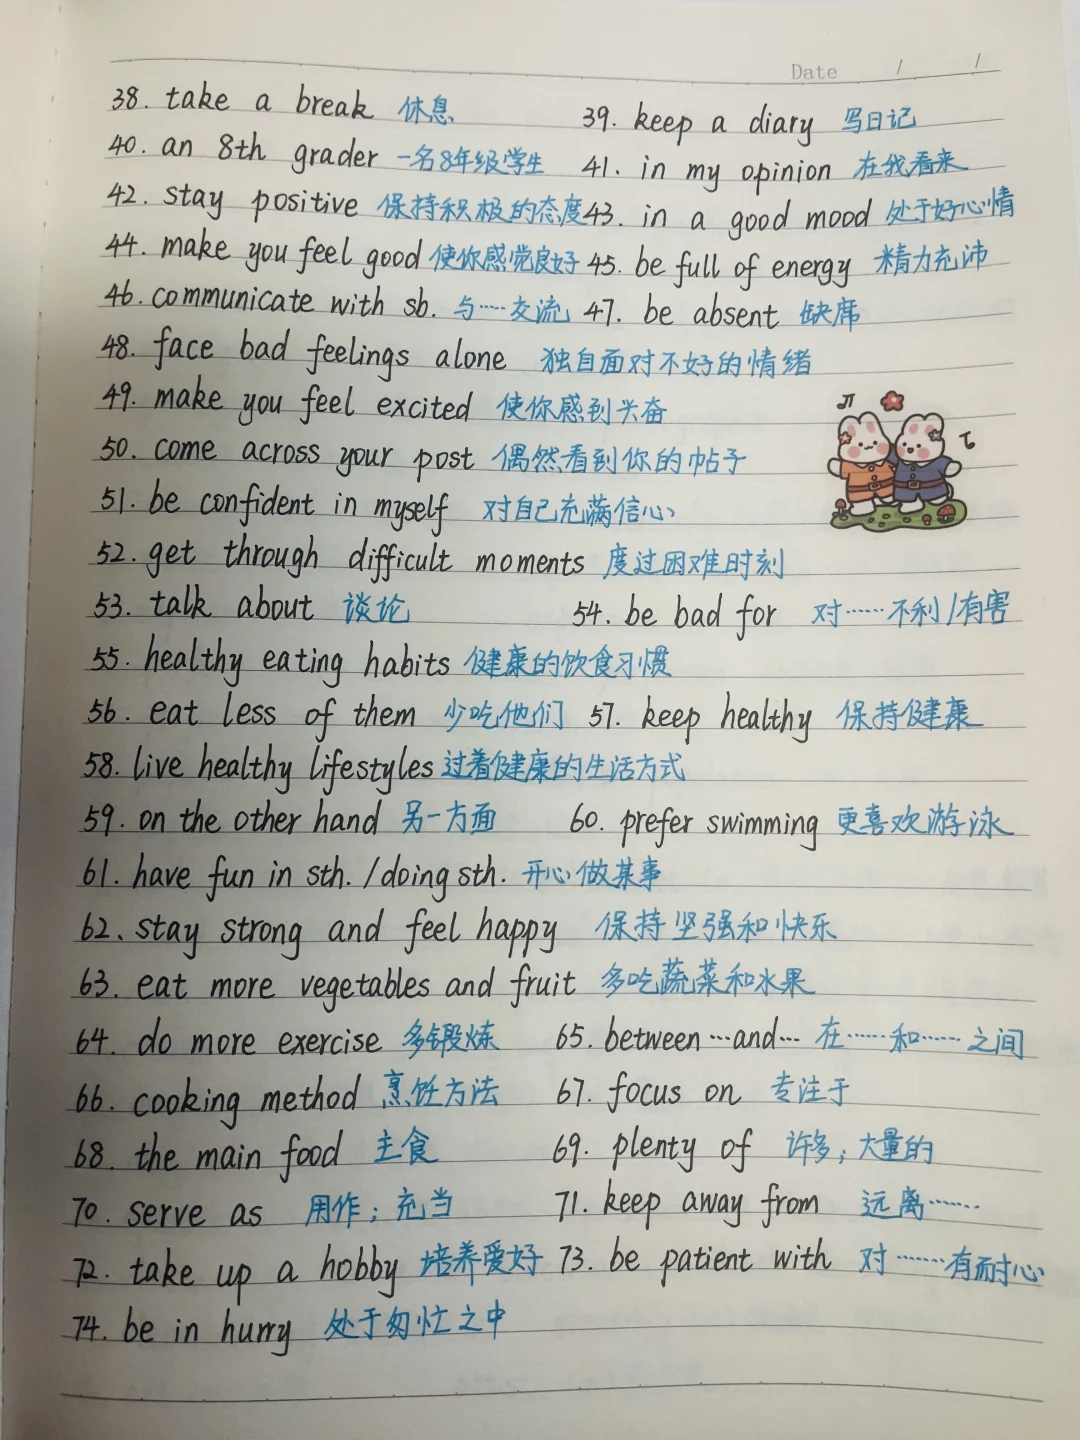 Date / /
38. take a break 休息 39. keep a diary 写日记
40. an 8th grader 一名8年级学生 41. in my opinion 在我看来
42. stay positive 保持积极的态度 43. in a good mood 处于好心情
44. make you feel good 使你感觉良好 45. be full of energy 精力充沛
46. communicate with sb. 与……交流 47. be absent 缺席
48. face bad feelings alone 独自面对不好的情绪
49. make you feel excited 使你感到兴奋
50. come across your post 偶然看到你的帖子
51. be confident in myself 对自己充满信心
52. get through difficult moments 度过困难时刻
53. talk about 谈论 54. be bad for 对……不利/有害
55. healthy eating habits 健康的饮食习惯
56. eat less of them 少吃他们 57. keep healthy 保持健康
58. live healthy lifestyles 过着健康的生活方式
59. on the other hand 另一方面 60. prefer swimming 更喜欢游泳
61. have fun in sth. /doing sth. 开心做某事
62、stay strong and feel happy 保持坚强和快乐
63. eat more vegetables and fruit 多吃蔬菜和水果
64. do more exercise 多锻炼 65. between…and… 在……和……之间
66. cooking method 烹饪方法 67. focus on 专注于
68. the main food 主食 69. plenty of 许多;大量的
70. serve as 用作;充当 71. keep away from 远离……
72. take up a hobby 培养爱好 73. be patient with 对……有耐心
74. be in hurry 处于匆忙之中